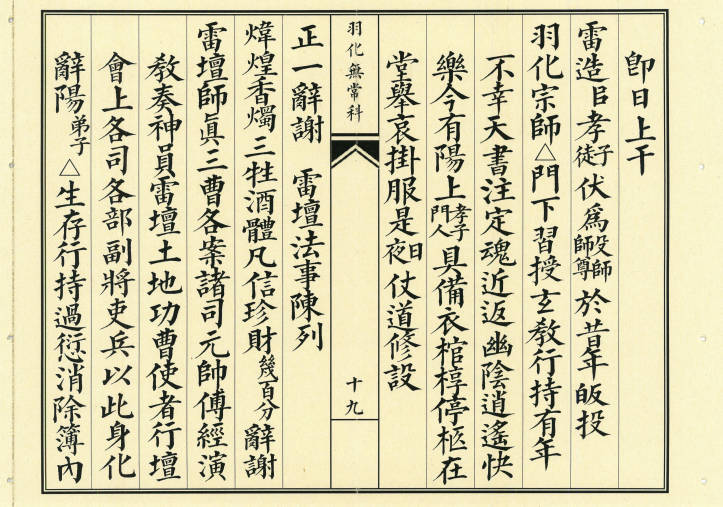 卽日上干
雷造𦣞孝子徒伏爲歿師師尊於昔年皈投
羽化宗師△門下習授玄教行持有年
不幸天書注定魂近返幽陰逍遙快
樂今有陽上孝子門人具備衣棺椁停柩在
堂舉哀掛服是日夜仗道修設
羽化無常科
十九
正一辭謝 雷壇法事陳列
煒煌香燭三牲酒醴凡信珍財幾百分辭謝
雷壇師眞三曹各案諸司元帥傅經演
敎奏神員雷壇土地功曹使者行壇
會上各司各部副將吏兵以此身化
辭陽弟子△生存行持過愆消除簿內